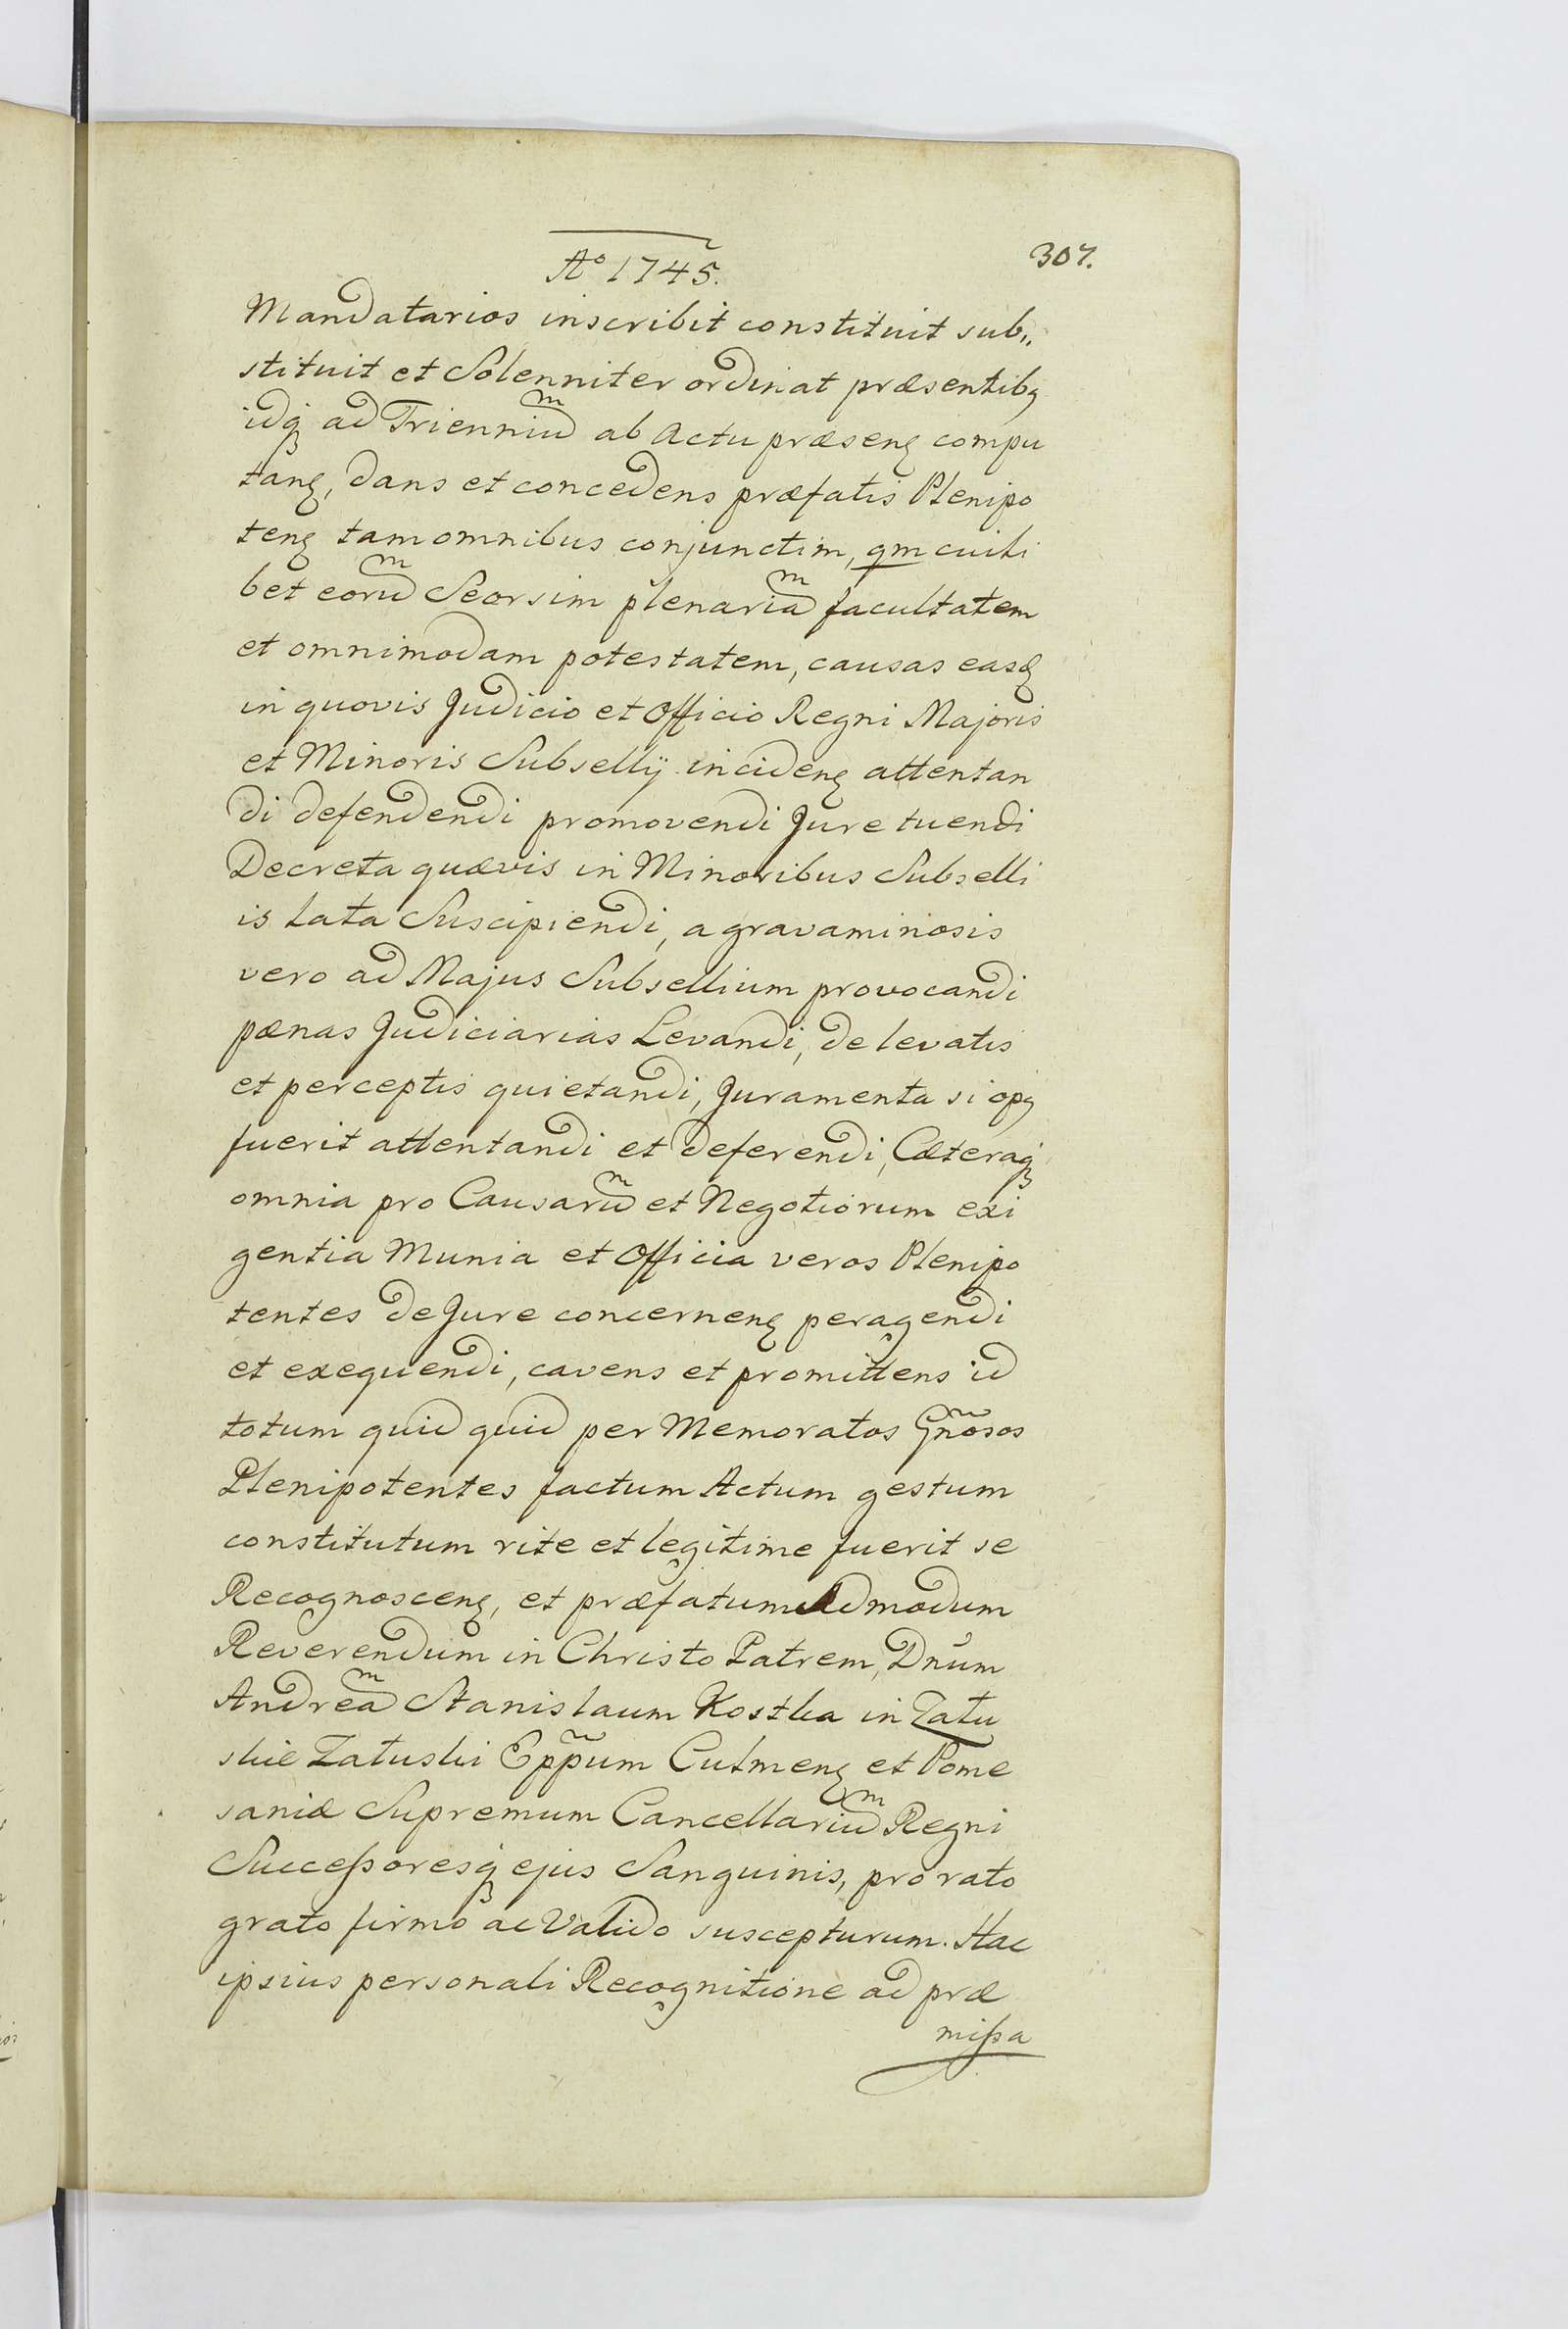 Aº 1745.
307.
Mandatarios inscribit constituit sub„
stituit et Solenniter ordinat præsentibꝫ
idqꝫ ad Trienniu͞m ab Actu præsenꝭ compu
tanꝭ, dans et concedens præfatis Plenipo
tenꝭ tam omnibus conjunctim, qm cuili
bet eoru͞m Seorsim plenaria͞m facultatem
et omnimodam potestatem, causas easꝗ
in quovis Judicio et Officio Regni Majoris
et Minoris Subsellÿ incidenꝭ attentan
di defendendi promovendi Jure tuendi
Decreta quævis in Minoribus Subselli
is lata Suscipiendi, a gravaminosis
vero ad Majus Subsellium provocandi
pænas Judiciarias Levandi, de levatis
et perceptis quietandi, Juramenta si opꝫ
fuerit attentandi et deferendi, Cæteraqꝫ
omnia pro Causaru͞m et Negotiorum exi
gentia Munia et Officia veros Plenipo
tentes de Jure concernenꝭ peragendi
et exequendi, cavens et promittens id
totum quid quid per Memoratos Gñosos
Plenipotentes factum Actum gestum
constitutum rite et legitime fuerit se
Recognoscenꝭ, et præfatum Admodum
Reverendum in Christo Patrem, Dnūm
Andrea͞m Stanislaum Kostka in Zału
skie Załuski Epp̃um Culmenꝭ et Pome
saniæ Supremum Cancellariu͞m Regni
Succeßoresqꝫ ejus Sanguinis, pro rato
grato firmo ac Valido suscepturum. Hac
ipsius personali Recognitione ad præ
mißa